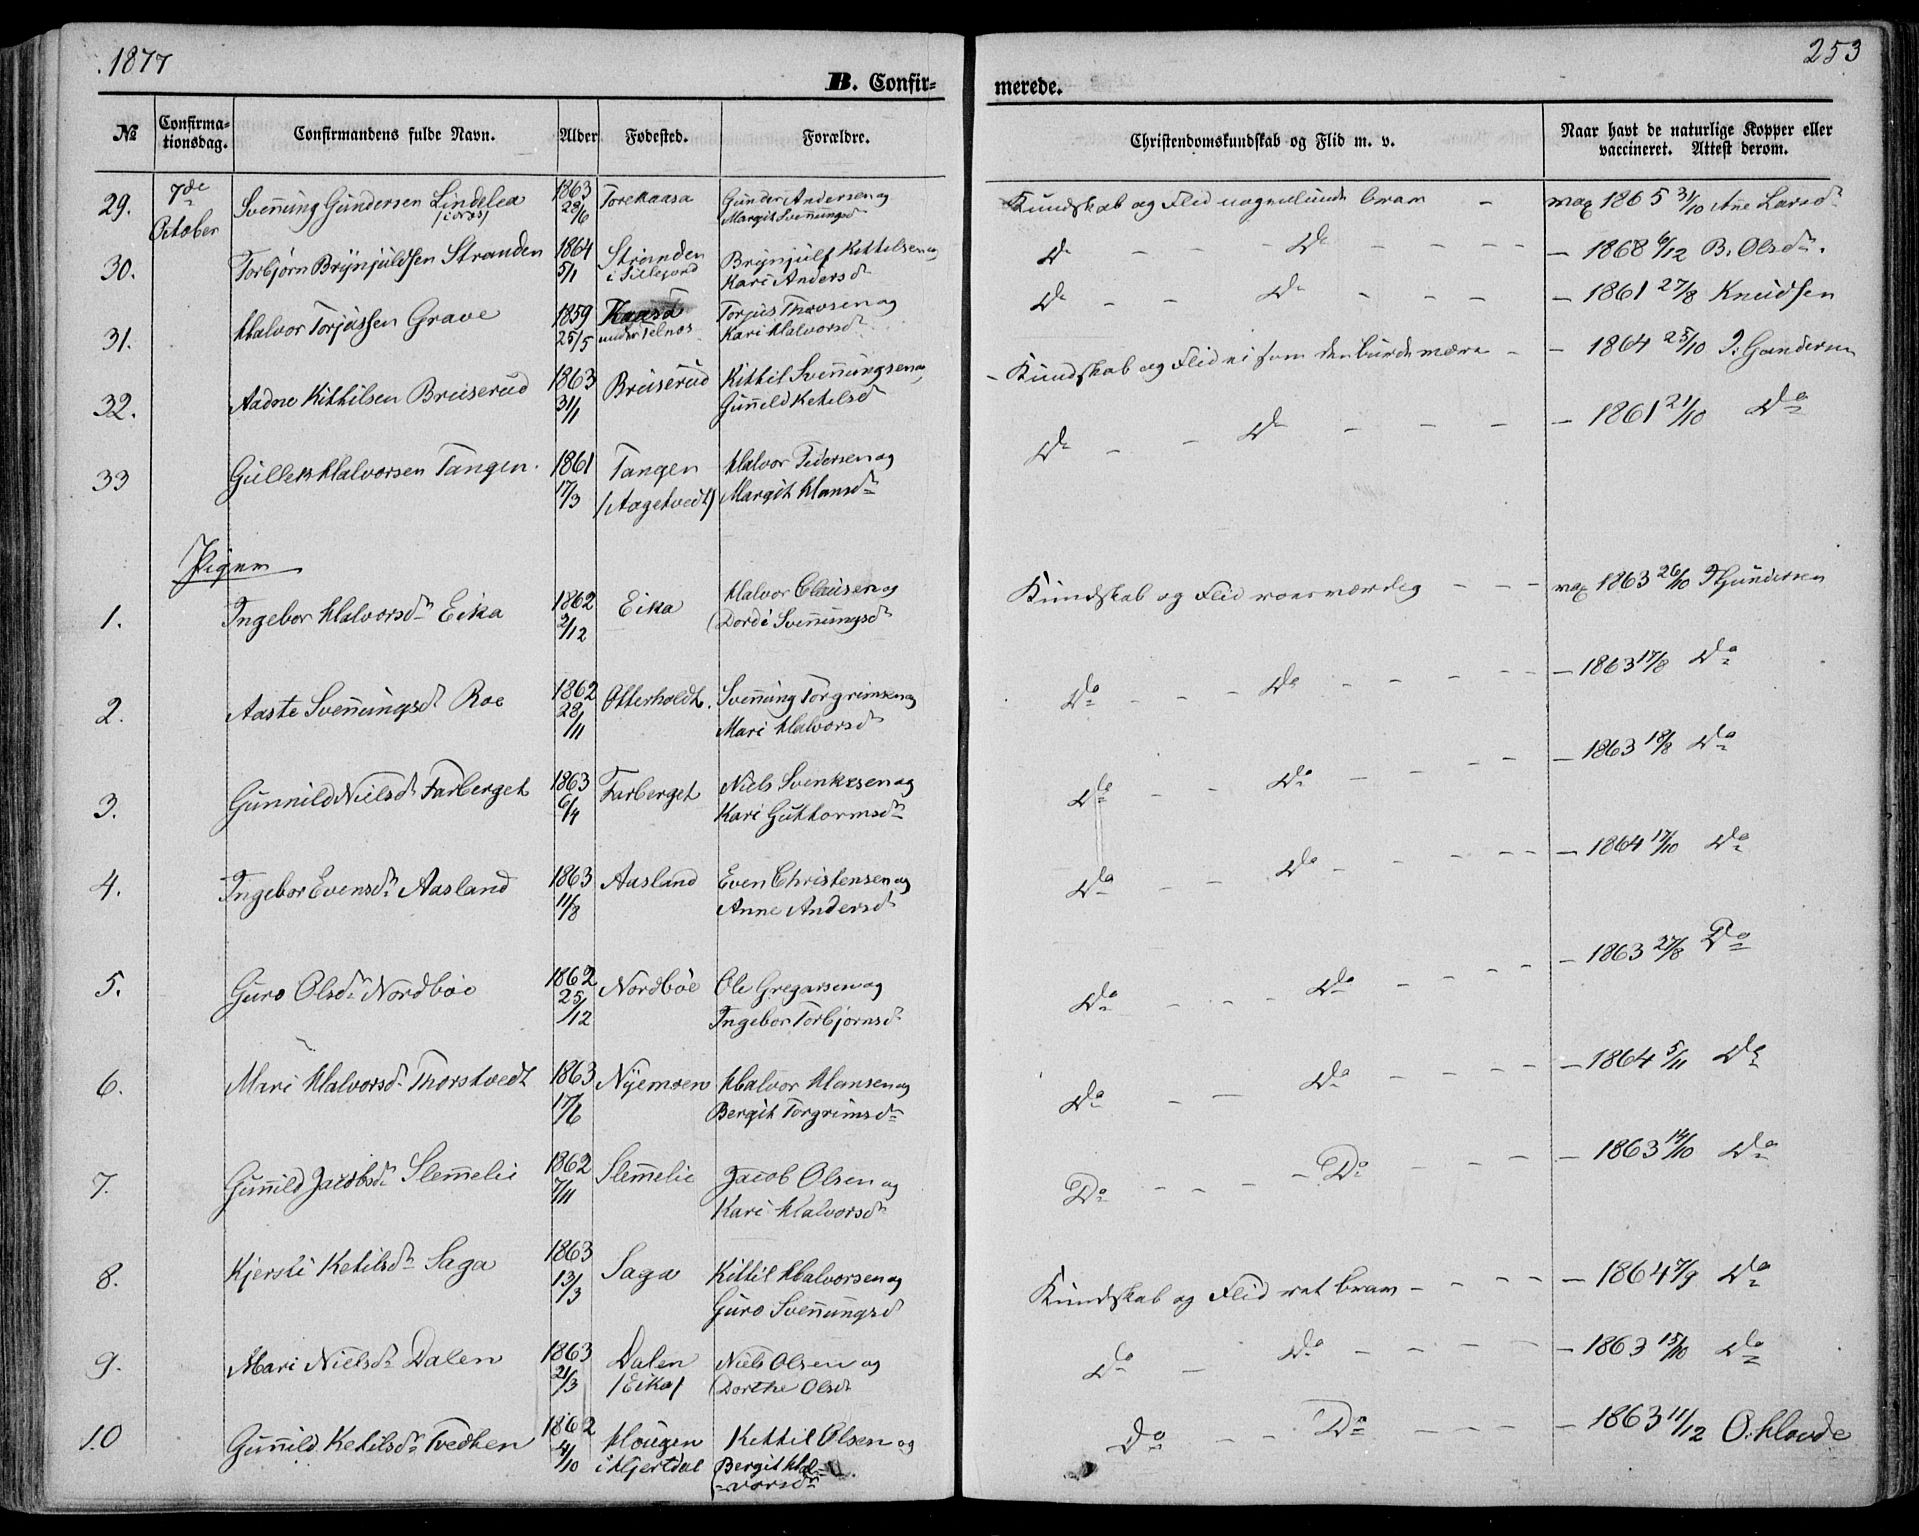 1877
253
B. Confir-
merede.
№ Confirma-tionsdag. Confirmandens fulde Navn. Alder Fødested. Forældre. Christendomskundskab og Flid m. v. Naar havt de naturlige Kopper eller vaccineret. Attest derom.
29. 7de October Svennung Gundersen Lindelea 1863 28/6 Torekaasa Gunder Andersen og Margit Svennungsd Kundskab og Flid nogenlunde brav – 1865 31/10 Ane Larsd
30. Torbjørn Brynjuldsen Stranden 1864 5/1 Stranden i Sillejord Brynjulf Kittilsen og Kari Andersd Do – – Do – – – – – 1868 6/12 B. Olsdr.
31. Halvor Torjussen Grave 1859 25/5 Kaasa under Selnes Torjus Thovsen og Kari Halvorsd Do – – – Do – – – – 1861 27/8 Knudsen
32. Aadne Kittilsen Bruserud 1863 31/1 Bruserud Kittil Svennungsen og Gunild Ketilsd – Kundskab og Flid ei som den burde være – – 1864 25/10 Gundersen
33 Gullek Halvorsen Tangen. 1861 17/3 Tangen /Aagetvedt/ Halvor Pedersen og Margit Hansd Do – – Do – – – – 1861 21/10 Do
Piger
1. Ingebor Halvorsd Eika 1862 2/12 Eika Halvor Clausen og Dordi Svennungsd Kundskab og Flid roesværdig – – – 1863 26/10 Gundersen
2. Aaste Svennungsd Roe 1862 28/11 Otterholdt. Svennung Torgrimsen og Mari Halvorsd Do – – Do – – – – – – 1863 17/8 Do
3. Gunnild Nielsd Farberget 1863 6/4 Farberget Niels Svenkesen og Kari Guttormsd Do – – Do – – – – – 1863 18/8 Do
4. Ingebor Evensd Aasland 1863 11/8 Aasland Even Christensen og Anne Andersd Do – – Do – – – – – 1864 17/10 Do
5. Guro Olsd Nordbøe 1862 25/12 Nordbøe Ole Gregarsen og Ingebor Torbjørnsd Do – – – Do – – – – – 1863 27/8 Do
6. Mari Halvorsd Thorstvedt 1863 17/6 Nyemoen Halvor Hansen og Bergit Torgrimsd Do – – Do – – – – – 1864 5/11 Do
7. Gunild Jacobsd Slemmelie 1862 7/11 Slemmelie Jacob Olsen og Kari Halvorsd Do – – – – Do – – – – 1863 14/10 Do
8. Kjersti Ketilsd Saga 1863 13/3 Saga Kittil Halvorsen og Guro Svennungsd Kundskab og Flid ret brav – – – – – 1864 7/9 Do
9. Mari Nielsd Dalen 1863 21/3 Dalen /Eika/ Niels Olsen og Dorthe Olsd Do – Do – – – – – 1863 15/10 Do
10 Gunild Ketilsd Tvedten 1862 4/10 Hougen i Hjertdal Kittil Olsen og Bergit Hal-vorsd Do – – Do – – – – 1863 11/12 O. Hovde